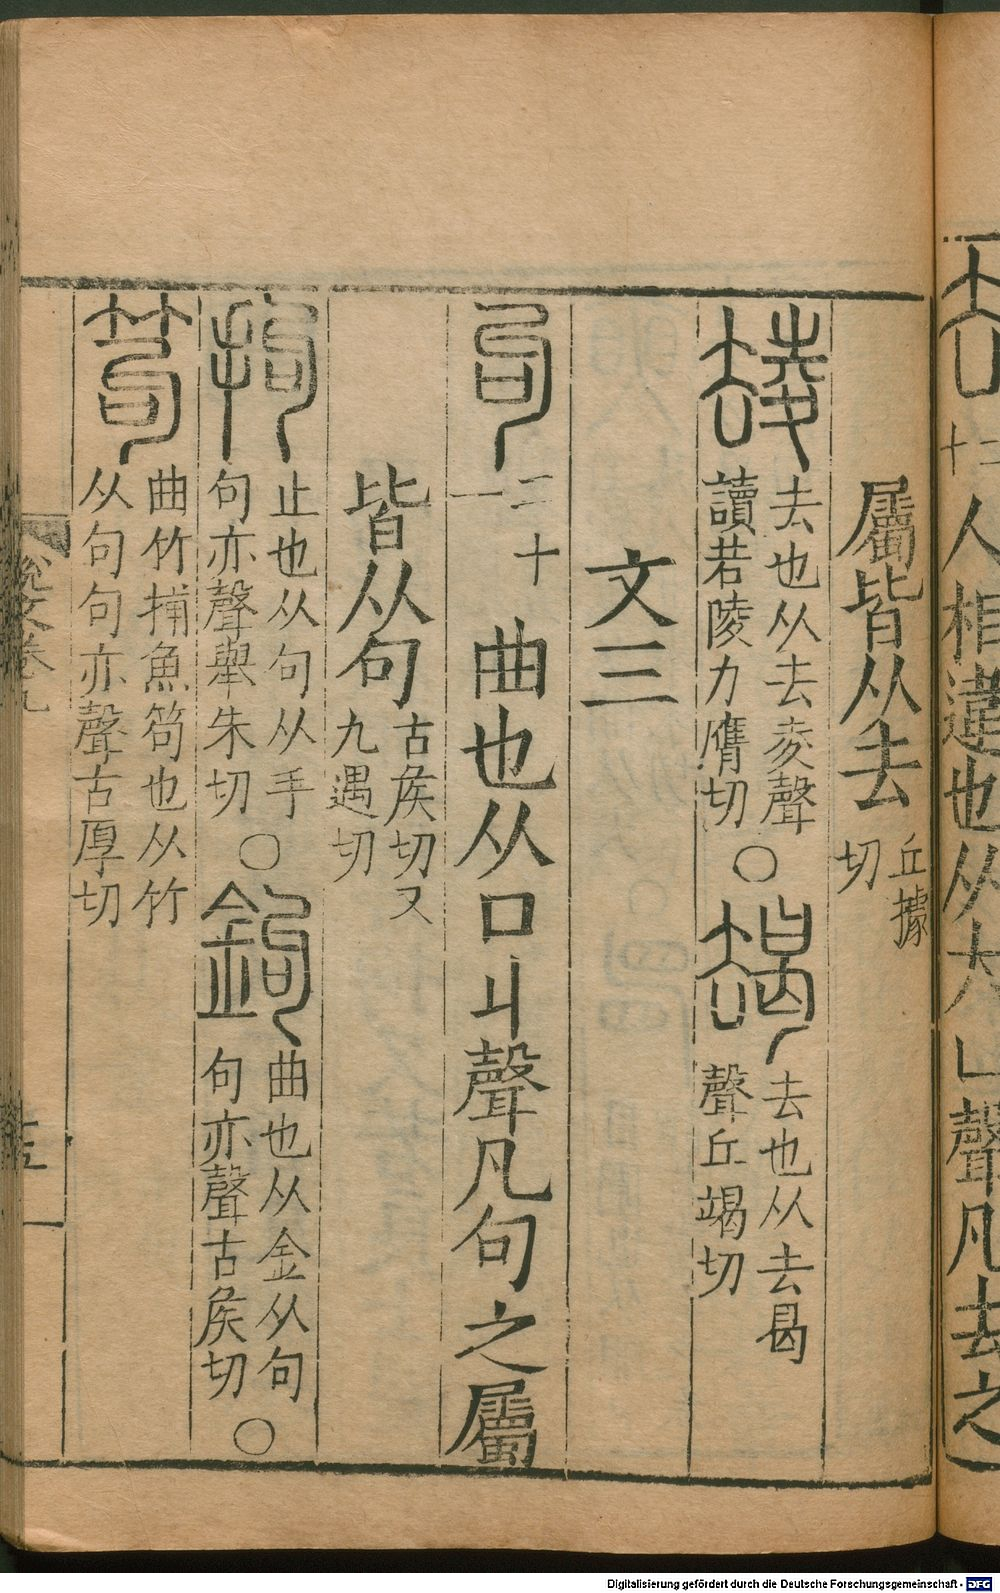 𠫓 二十 人相違也从大𠙴聲凡去之
屬皆从去 丘據切
𠫂 去也从去夌聲讀若陵力膺切○朅 去也从去曷聲丘竭切
文三
句 二十一 曲也从口丩聲凡句之屬
皆从句 古矦切又九遇切
拘 止也从句从手句亦聲舉朱切○鉤 曲也从金从句句亦聲古矦切○
笱 曲竹捕魚笱也从竹从句句亦聲古厚切
說文卷九
Digitalisierung gefördert durch die Deutsche Forschungsgemeinschaft - DFG